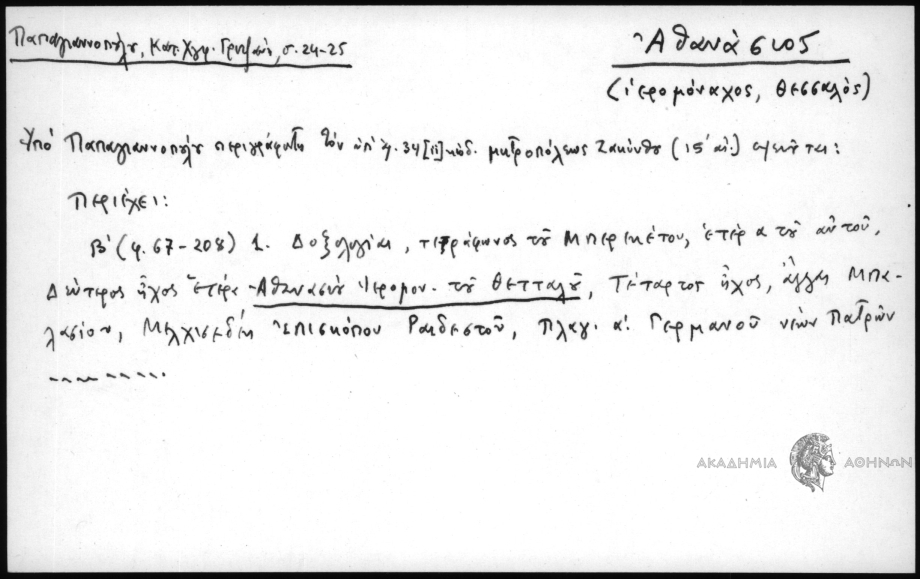 Παπαγιαννοπούλου, Κατ. Χγφ. σ. 24-25
Ἀθανάσιος
(ἱερομόναχος, Θεσσαλὸς)
Ὑπὸ Παπαγιαννοπούλου περιγράφεται τὸν ὑπ' ἀρ. 34 [11] κώδ. μητροπόλεως Ζακύνθου (15' αἰ.)
Περιέχει:
Β' (φ. 67-208) 1. Δοξολογίαι, τετράφωνος τοῦ Μπερεκέτου, ἑτέρα τοῦ αὐτοῦ,
Δεύτερος ἦχος ἑτέρα Ἀθανασίου Ἱερομον. τοῦ Θετταλοῦ, Τέταρτος ἦχος, ἄλλη Μπα-
λασίου, Μελχισεδὲκ Ἐπισκόπου Ραιδεστοῦ, Πλαγ. α'. Γερμανοῦ νέων Πατρῶν
ΑΚΑΔΗΜΙΑ ΑΘΗΝΩΝ